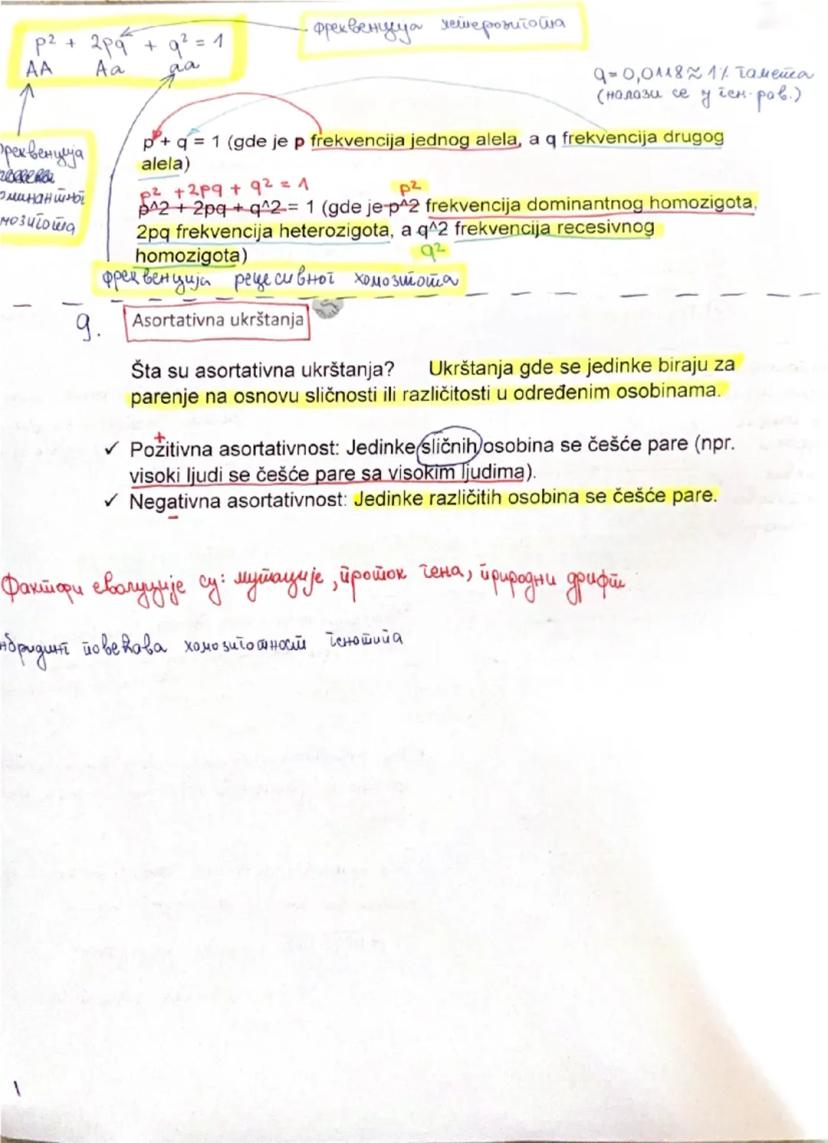 фреквенција хетерозигота
p² + 2pq + q² = 1
AA Aa aa
q = 0,0118 ≈ 1% гамета
(налази се у ген. рав.)
фреквенција
доминантног
хомозигота
p + q = 1 (gde je p frekvencija jednog alela, a q frekvencija drugog
alela)
p² + 2pq + q² = 1 p²
p^2 + 2pq + q^2 = 1 (gde je p^2 frekvencija dominantnog homozigota,
2pq frekvencija heterozigota, a q^2 frekvencija recesivnog
homozigota) q²
фреквенција рецесивног хомозигота
9. Asortativna ukrštanja
Šta su asortativna ukrštanja? Ukrštanja gde se jedinke biraju za
parenje na osnovu sličnosti ili različitosti u određenim osobinama.
+
✓ Pozitivna asortativnost: Jedinke sličnih osobina se češće pare (npr.
visoki ljudi se češće pare sa visokim ljudima).
✓ Negativna asortativnost: Jedinke različitih osobina se češće pare.
Фактори еволуције су: мутације, проток гена, природни дрифт
нбридинг повећава хомозиготност генотипа